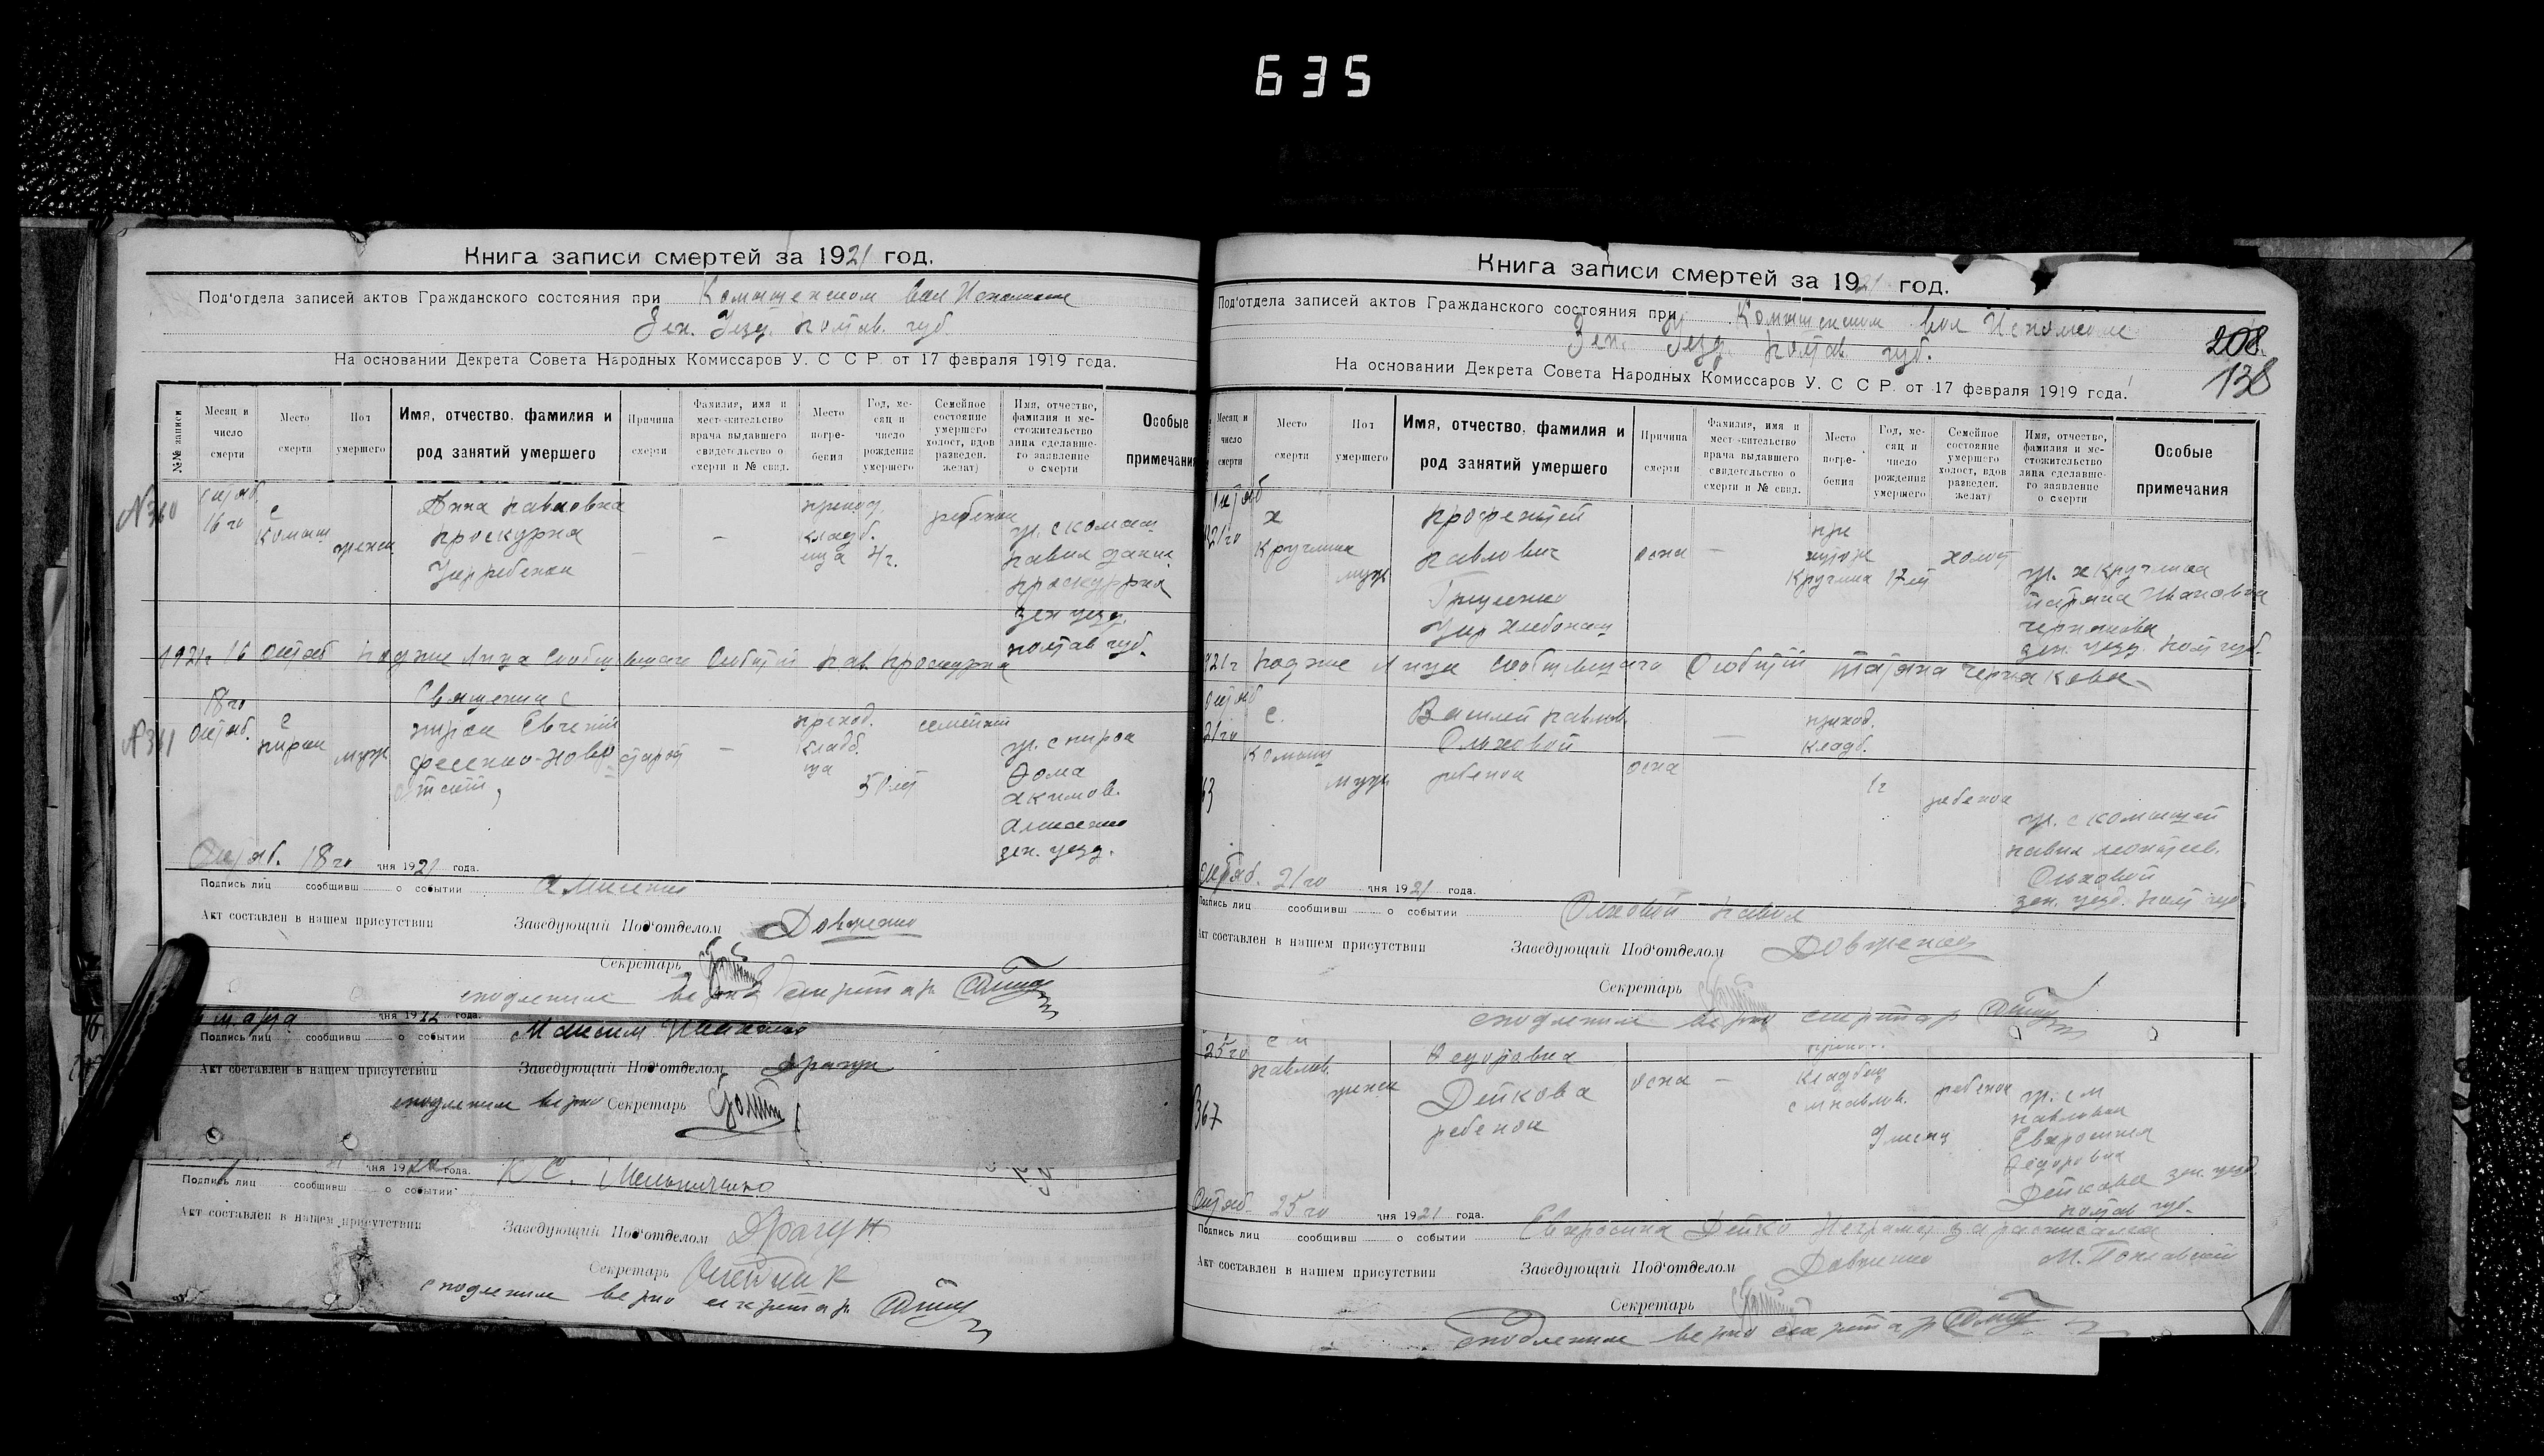 635
Книга записи смертей за 1921 год.
Под'отдела записей актов Гражданского состояния при Комышенском Вол Исполкоме
Зен. Уезд. Полтав. губ.
На основании Декрета Совета Народных Комиссаров У. С С Р. от 17 февраля 1919 года.
№№ записи
Месяц и число смерти
Место смерти
Пол умершего
Имя, отчество, фамилия и род занятий умершего
Причина смерти
Фамилия, имя и мест-жительство врача выдавшего свидетельство о смерти и № свид.
Место погребения
Год, месяц и число рождения умершего
Семейное состояние умершего холост, вдов разведен. женат)
Имя, отчество, фамилия и местожительство лица сделавшего заявление о смерти
Особые примечания
№360
Октяб 16 го
с Комыш
женск
Анна Павловна
Проскурна
Умр ребенок
—
—
приход. кладб. ища
4 г.
ребенок
ж. с Комыш
Павил Данил.
Проскурна
Зен уезд.
Полтав губ.
1921 г 16 Октяб Подпис Лица Сообщившаго Событий Пав Проскурна
№361
18 го Октяб.
с
муж
Священик с
Евгений
Фесенко-Ново
старост
—
приход. кладб. ща
50 лет
семейный
Фома
Акимов.
зен. уезд.
Октяб. 18 го дня 1921 года.
Подпись лиц сообщивш о событии
Акт составлен в нашем присутствии
Заведующий Под'отделом Довженко
Секретарь
с подлиним верно Секретар
дня 1922 года.
Подпись лиц сообщивш о событии Максим
Акт составлен в нашем присутствии
Заведующий Под'отделом Драгун
с подлиним верно Секретарь
дня 192 года.
Подпись лиц сообщивш о событии К С. Мельниченко
Акт составлен в нашем присутствии
Заведующий Под'отделом Драгун
Секретарь
с подлиним верно секретар
Книга записи смертей за 1921 год.
Под'отдела записей актов Гражданского состояния при Комышенском Вол Исполкоме
Зен. Уезд. Полтав. губ.
208.
138
На основании Декрета Совета Народных Комиссаров У. С С Р. от 17 февраля 1919 года.
Месяц и число смерти
Место смерти
Пол умершего
Имя, отчество, фамилия и род занятий умершего
Причина смерти
Фамилия, имя и мест-жительство врача выдавшего свидетельство о смерти и № свид.
Место погребения
Год, месяц и число рождения умершего
Семейное состояние умершего холост, вдов разведен. женат)
Имя, отчество, фамилия и местожительство лица сделавшего заявление о смерти
Особые примечания
Октяб 21 го
х Круглика
муж
Павлович
Гриценко
Умр Хлебопаш
оспа
—
при хуторе Круглик
17 лет
холост
ж. х Круглика
Татяна Ивановна
Чернякова
зен. уезд. Полт губ.
21 г Подпис Лица Сообщившаго Событий Татяна Чернякова
Октяб 21 го
63
с. Комыш
муж
Василей Павлов
Ольховой
ребенок
оспа
—
приход. кладб.
1 г
ребенок
ж. с Комышей
Павил Леонтьев.
Ольховой
зен. уезд. Полт губ
Октяб. 21 го дня 1921 года.
Подпись лиц сообщивш о событии Олховой Павил
Акт составлен в нашем присутствии
Заведующий Под'отделом Довженко
Секретарь
с подлиним верно секретар
25 го
367
с м Павлов.
женск
Федоровна
Дейкова
ребенок
оспа
—
кладбищ
с м Павлов.
9 месяц
ребенок
ж. с м
Павловки
Евхросиния
Федоровна
Дейкова зен. уезд.
Полтав губ.
Октяб 25 го дня 1921 года.
Подпись лиц сообщивш о событии Евхросина Дейко Неграмот за расписался
М. Поклавский
Акт составлен в нашем присутствии
Заведующий Под'отделом Довженко
Секретарь
с подлиним верно секретар